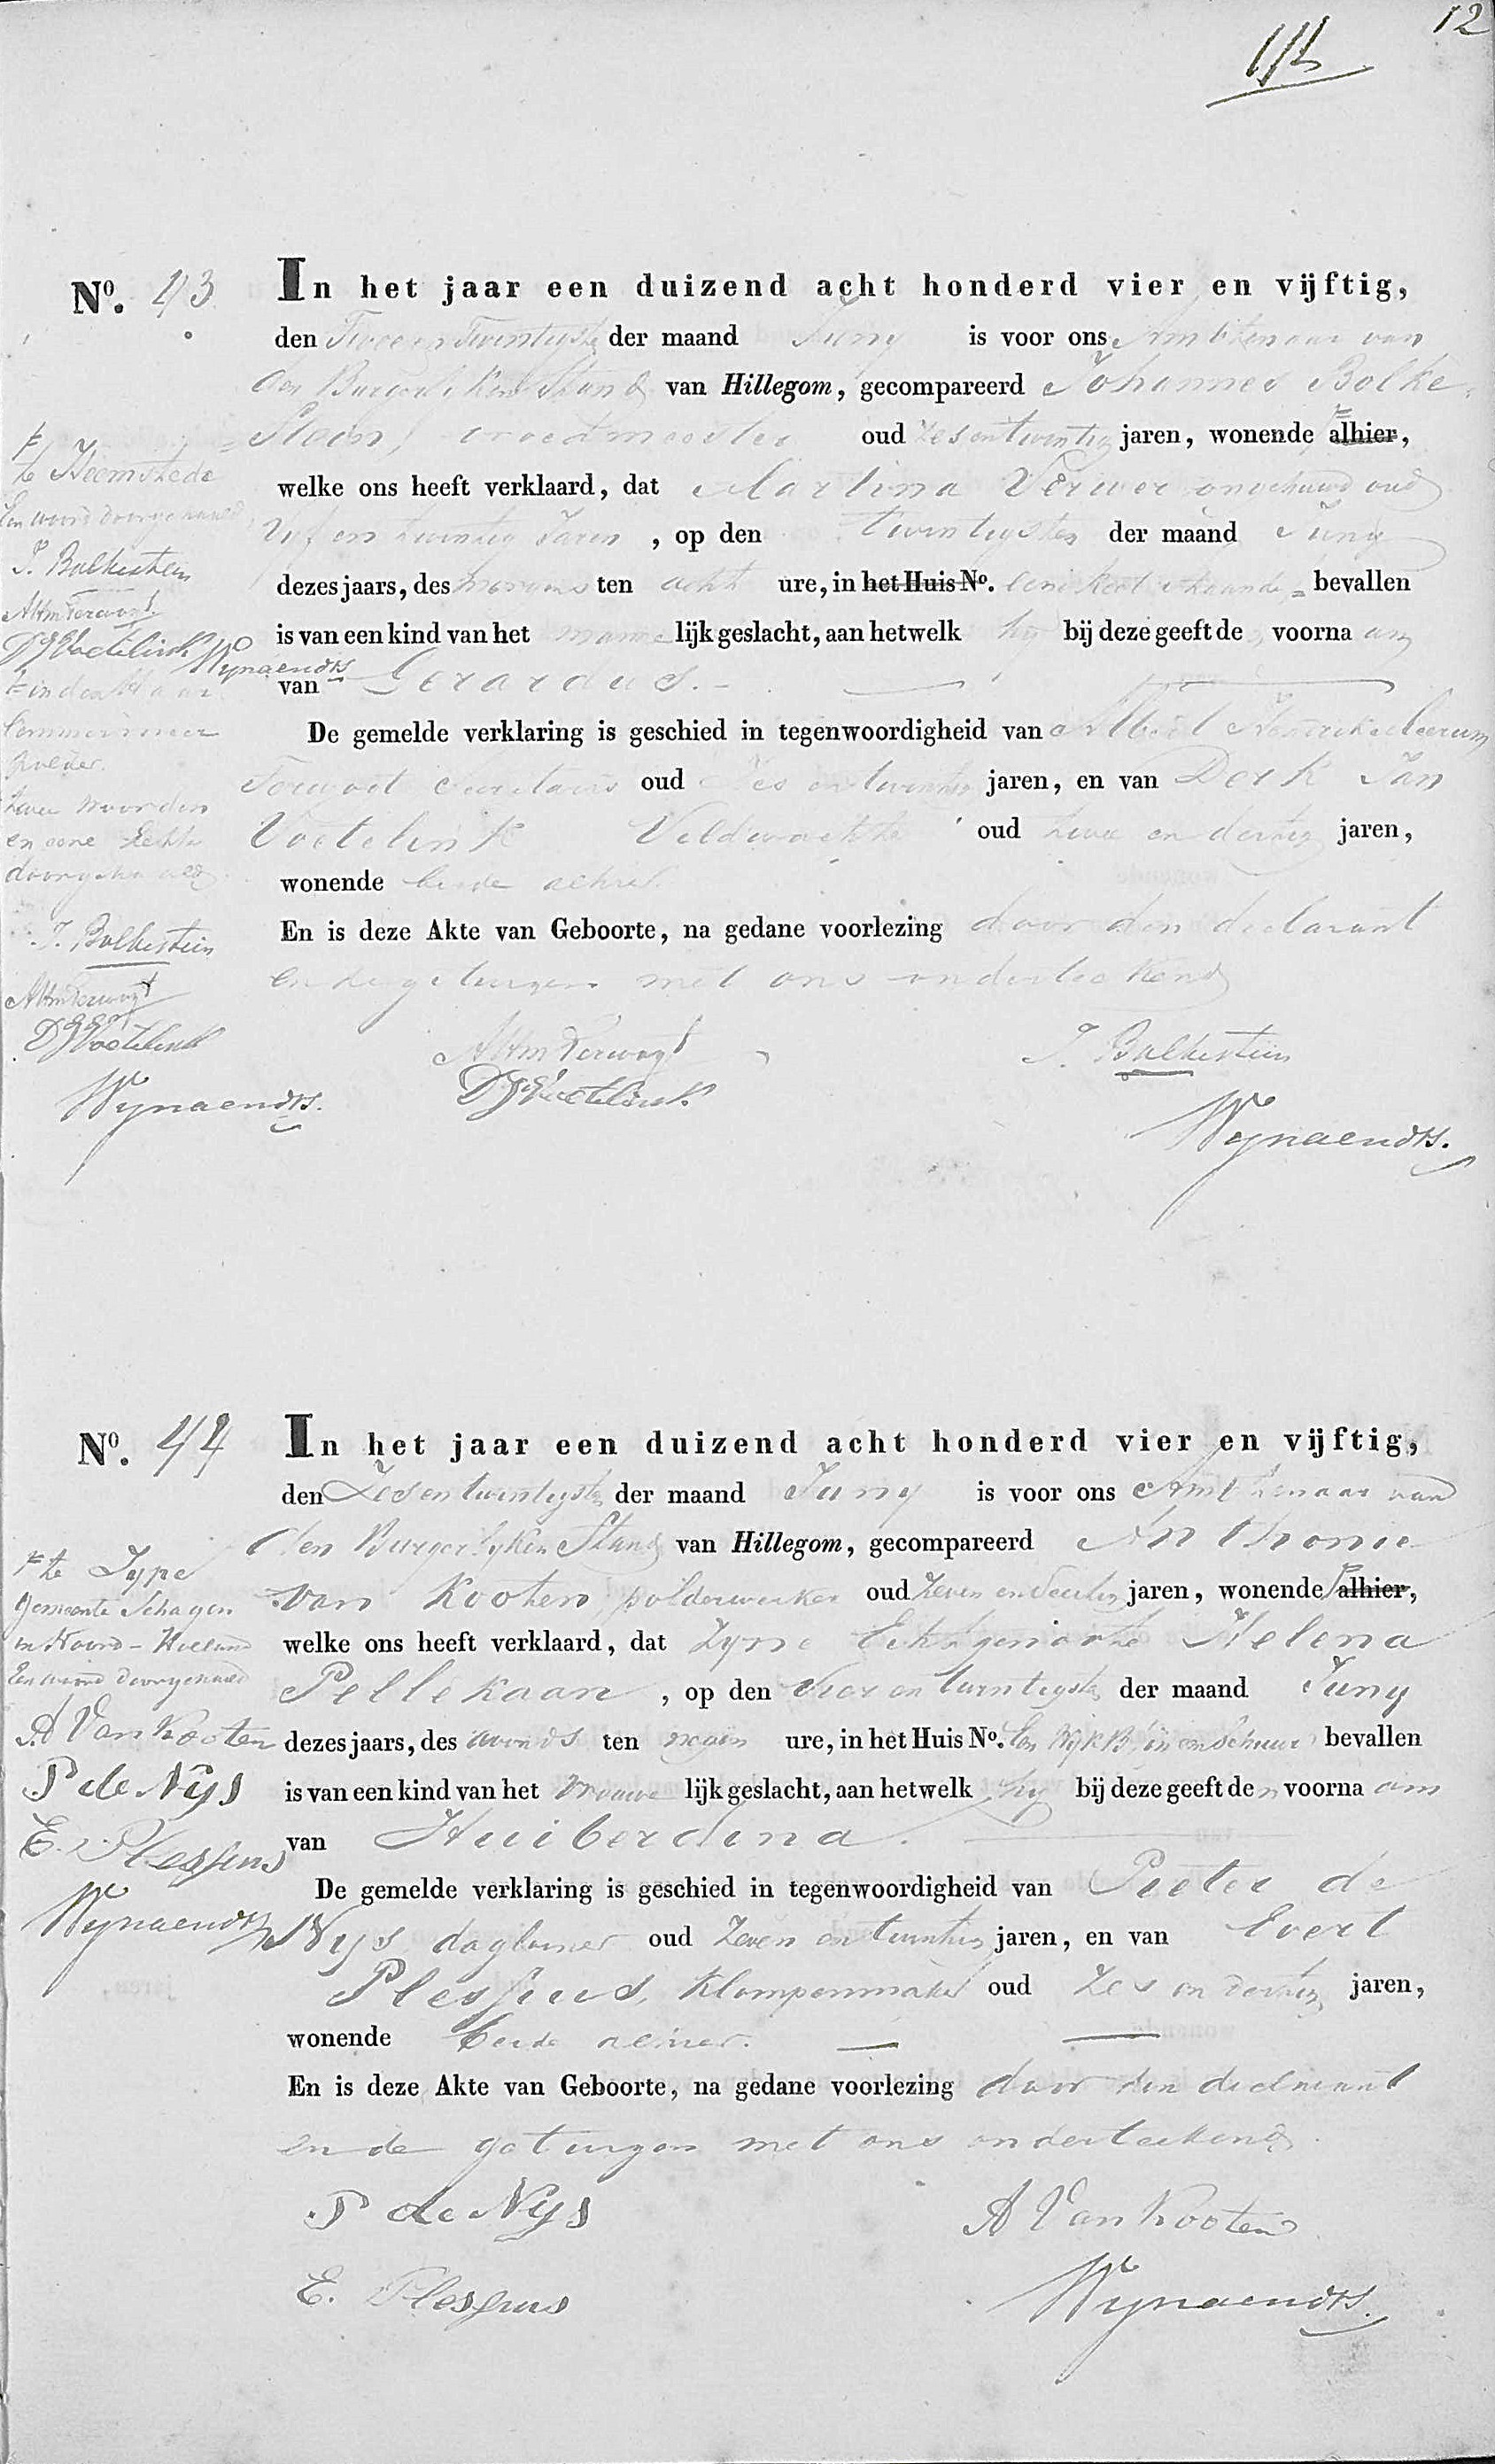 12
No. 43
In het jaar een duizend acht honderd vier en vijftig,
den Twee en Twintigste der maand Juny is voor ons Ambtenaar van
den Burgerlyken Stand van Hillegom, gecompareerd Johannes Bolke-
stein, vroedmeester oud zes en twintig jaren, wonende alhier,
welke ons heeft verklaard, dat Martina Verwer ongehuwd oud
vyf en twintig Jaren, op den twintigsten der maand Juny
dezes jaars, des morgens ten acht ure, in het Huis No. bevallen
is van een kind van het manne lijk geslacht, aan hetwelk hy bij deze geeft de voorna am
van Gerardus.
De gemelde verklaring is geschied in tegenwoordigheid van Albert
Terwogt Secretaris oud zes en twintig jaren, en van Derk Jan
Voetelink Veldwachter oud twee en dertig jaren,
wonende beide alhier
En is deze Akte van Geboorte, na gedane voorlezing door den declarant
en de getuigen met ons onderteekend
te Heemstede
Een woord doorgehaald
J. Bolkestein
AHm Terwogt
DJ Voetelink
Wynaendts
in den Haar
lemmermeer
polder.
twee woorden
en eene
doorgehaald
J. Bolkestein
AHm Terwogt
DJ Voetelink
Wynaendts.
AHm Terwogt
J. Bolkestein
DJ Voetelink
Wynaendts.
No. 44
In het jaar een duizend acht honderd vier en vijftig,
den Zes en twintigste der maand Juny is voor ons Ambtenaar van
den Burgerlyken Stand van Hillegom, gecompareerd Anthonie
van Kooten, polderwerker oud Zeven en Veertig jaren, wonende alhier,
welke ons heeft verklaard, dat Zyne Echtgenoote Helena
Pellekaan, op den Vier en twintigste der maand Juny
dezes jaars, des avonds ten negen ure, in het Huis No. Een Wyk B, in een Schuur bevallen
is van een kind van het vrouwe lijk geslacht, aan hetwelk hy bij deze geeft de n voorna am
van Huiberdina.
De gemelde verklaring is geschied in tegenwoordigheid van Pieter de
Nys daglooner oud Zeven en twintig jaren, en van Evert
Plessius, Klompenmaker oud Zes en dertig jaren,
wonende beide alhier.
En is deze Akte van Geboorte, na gedane voorlezing door den declarant
en de getuigen met ons onderteekend.
te Zype
Gemeente Schagen
in Noord-Holland
Een woord doorgehaald
A Van Kooten
P de Nys
E. Plessius
Wynaendts
P de Nys
A Van Kooten
E. Plessius
Wynaendts.